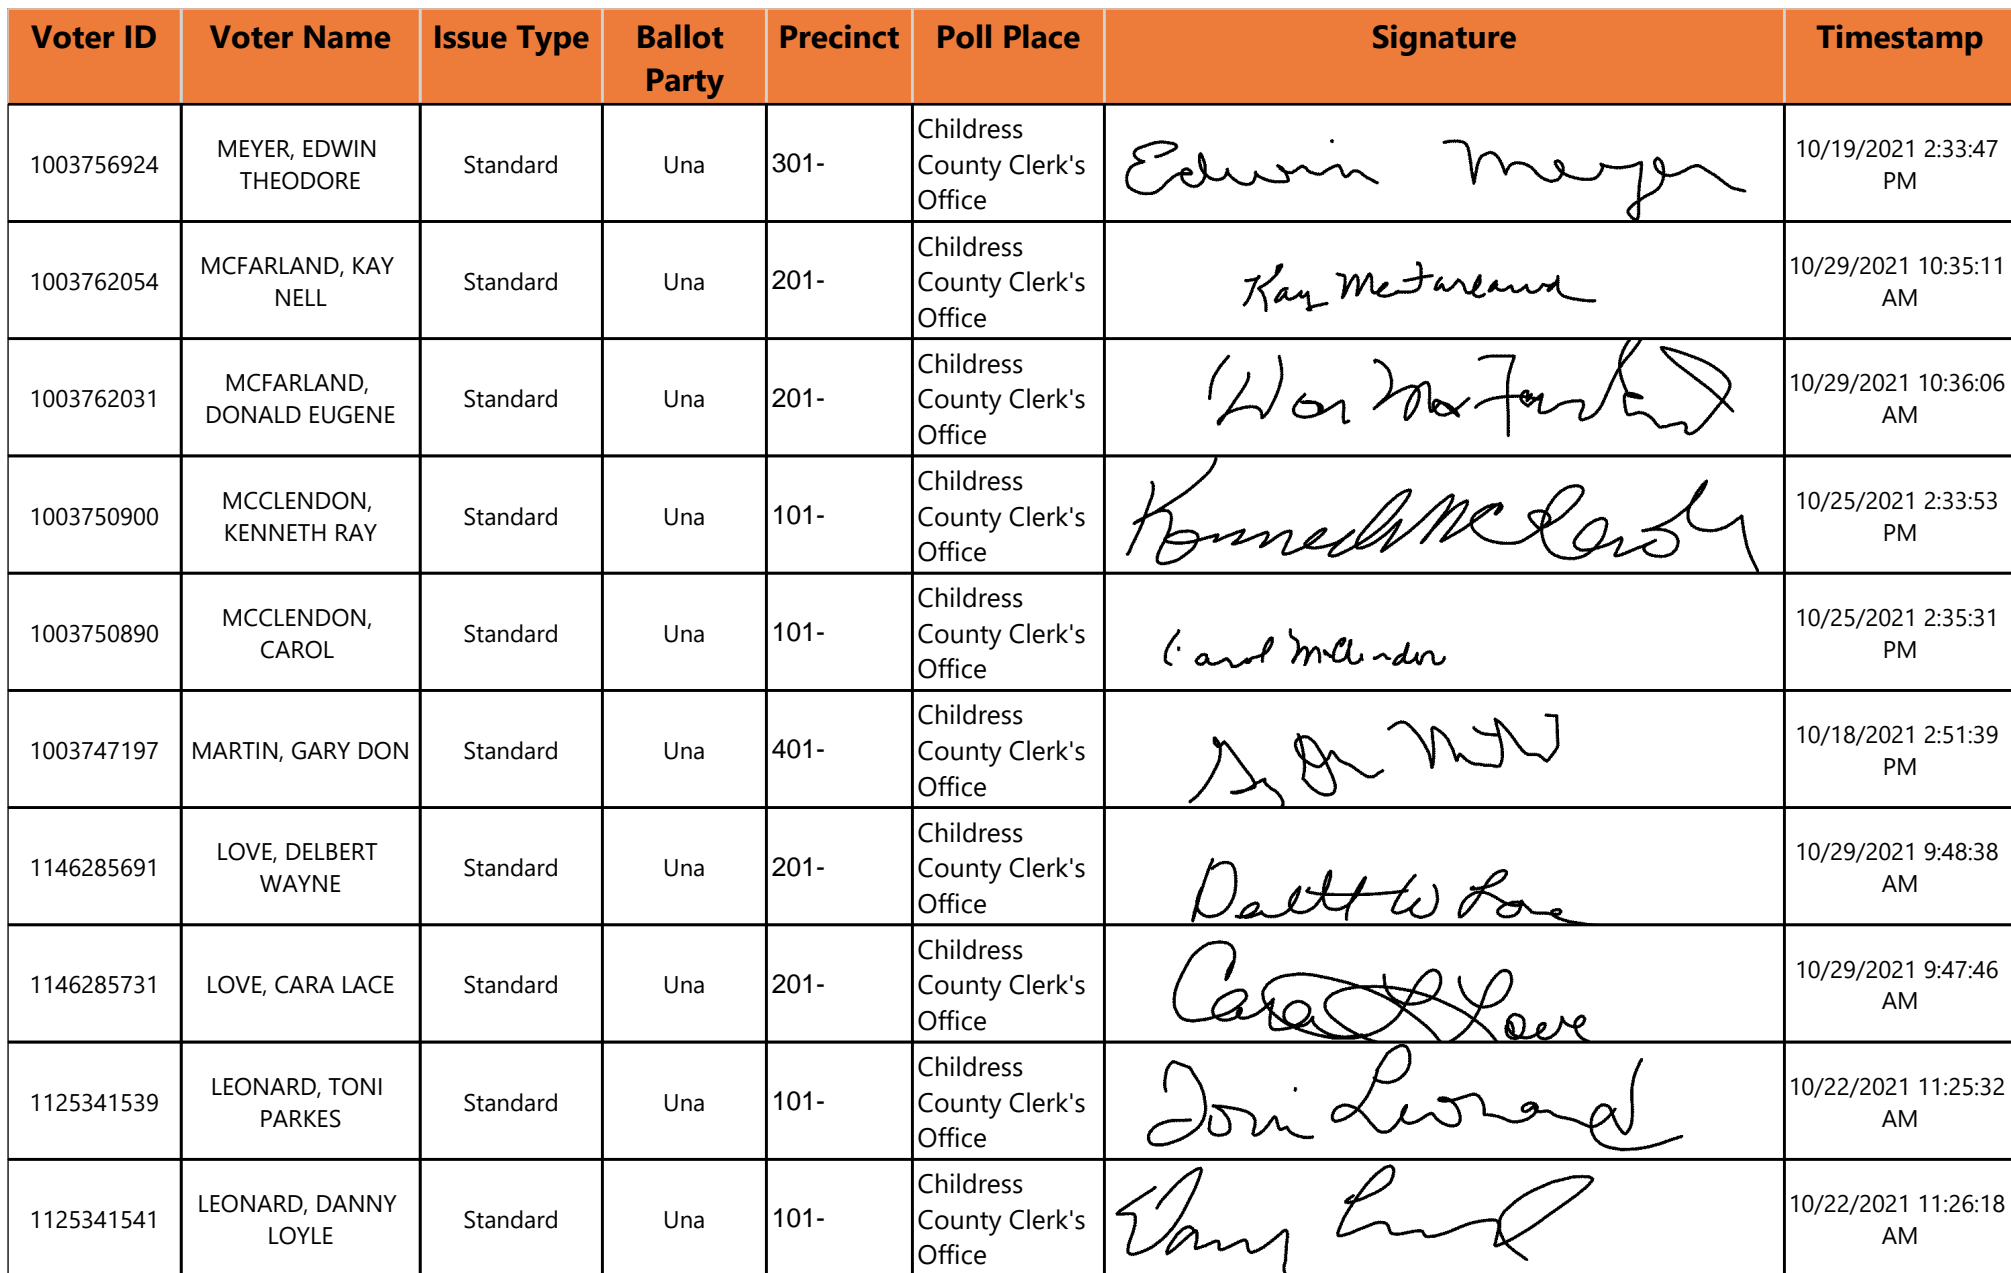 Voter ID Voter Name Issue Type Ballot Party Precinct Poll Place Signature Timestamp
1003756924 MEYER, EDWIN THEODORE Standard Una 301- Childress County Clerk's Office Edwin Meyer 10/19/2021 2:33:47 PM
1003762054 MCFARLAND, KAY NELL Standard Una 201- Childress County Clerk's Office Kay McFarland 10/29/2021 10:35:11 AM
1003762031 MCFARLAND, DONALD EUGENE Standard Una 201- Childress County Clerk's Office Don McFarland 10/29/2021 10:36:06 AM
1003750900 MCCLENDON, KENNETH RAY Standard Una 101- Childress County Clerk's Office Kenneth McClendon 10/25/2021 2:33:53 PM
1003750890 MCCLENDON, CAROL Standard Una 101- Childress County Clerk's Office Carol McClendon 10/25/2021 2:35:31 PM
1003747197 MARTIN, GARY DON Standard Una 401- Childress County Clerk's Office 10/18/2021 2:51:39 PM
1146285691 LOVE, DELBERT WAYNE Standard Una 201- Childress County Clerk's Office W Love 10/29/2021 9:48:38 AM
1146285731 LOVE, CARA LACE Standard Una 201- Childress County Clerk's Office Cara L Love 10/29/2021 9:47:46 AM
1125341539 LEONARD, TONI PARKES Standard Una 101- Childress County Clerk's Office Toni Leonard 10/22/2021 11:25:32 AM
1125341541 LEONARD, DANNY LOYLE Standard Una 101- Childress County Clerk's Office 10/22/2021 11:26:18 AM